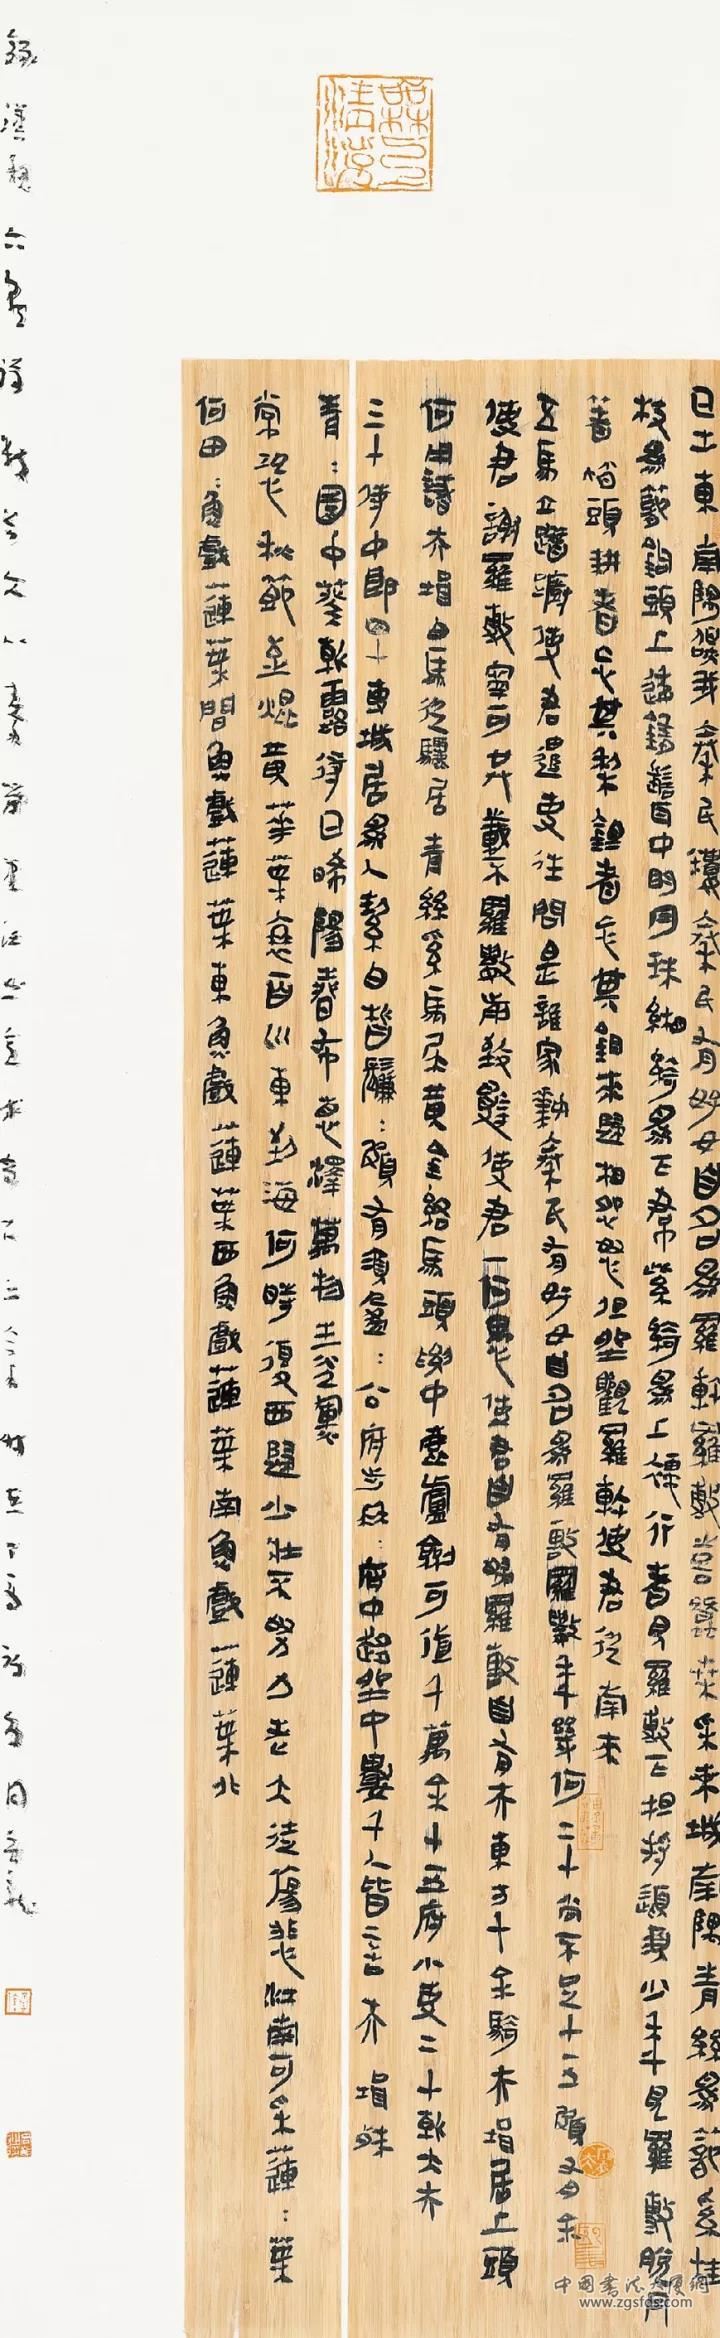 日出東南隅照我秦氏樓秦氏有好女自名為羅敷羅敷喜蠶桑采桑城南隅青絲為籠系桂
枝為籠鉤頭上倭墮髻耳中明月珠緗綺為下帬紫綺為上襦行者見羅敷下担捋髭須少年見羅敷脫冃
著帩頭耕者忘其犁鋤者忘其鋤來歸相怨怒但坐觀羅敷使君從南來
五馬立踟躕使君遣吏往問是誰家姝秦氏有好女自名為羅敷羅敷年幾何二十尚不足十五頗有余
使君謝羅敷寧可共載不羅敷前致辭使君一何愚使君自有婦羅敷自有夫東方千余騎夫壻居上頭
何用識夫壻白馬從驪居青絲系馬尾黃金絡馬頭腰中鹿盧劍可值千萬余十五府小吏二十朝大夫
三十侍中郎四十專城居為人潔白皙鬑:頗有須盈:公府步冉:府中趨坐中數千人皆言夫壻殊
青:園中葵朝露待日晞陽春布德澤萬物生光輝
常恐秋節至焜黃華葉衰百川東到海何時復西歸少壯不努力老大徒傷悲江南可采蓮:葉
何田:魚戲蓮葉間魚戲蓮葉東魚戲蓮葉西魚戲蓮葉南魚戲蓮葉北
中国书法大厦网
www.zgsfds.com